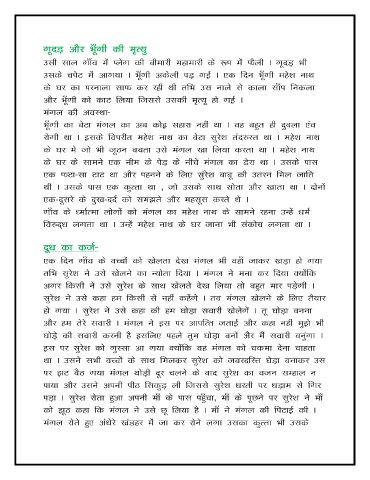 गूदड़ और भूँगी की मृत्यु
उसी साल गाँव में प्लेग की बीमारी महामारी के रूप में फैली । गूदड़ भी
उसके चपेट में आगया । भूँगी अकेली पड़ गई । एक दिन भूँगी महेश नाथ
के घर का परनाला साफ कर रही थी तभि उस नाले से काला साँप निकला
और भूँगी को काट लिया जिससे उसकी मृत्यु हो गई ।
मंगल की अवस्था-
भूँगी का बेटा मंगल का अब कोइ सहारा नहीं था । वह बहुत ही दुबला एंव
रोगी था । इसके विपरीत महेश नाथ का बेटा सुरेश तंदरुस्त था । महेश नाथ
के घर मे जो भी जूठन बचता उसे मंगल खा लिया करता था । महेश नाथ
के घर के सामने एक नीम के पेड़ के नीचे मंगल का डेरा था । उसके पास
एक फटा-सा टाट था और पहनने के लिए सुरेश बाबू की उतरन मिल जाति
थी । उसके पास एक कुत्ता था , जो उसके साथ सोता और खाता था । दोनों
एक-दुसरे के दुख-दर्द को समझते और महसूस करते थे ।
गाँव के धर्मात्मा लोगों को मंगल का महेश नाथ के सामने रहना उन्हें धर्म
विरुद्ध लगता था । उन्हें महेश नाथ के घर जाना भी संकोच लगता था ।
दुध का कर्ज-
एक दिन गाँव के बच्चों को खेलता देख मंगल भी वहीं जाकर खड़ा हो गया
तभि सुरेश ने उसे खेलने का न्योता दिया । मंगल ने मना कर दिया क्योंकि
अगर किसी ने उसे सुरेश के साथ खेलते देख लिया तो बहुत मार पड़ेगी ।
सुरेश ने उसे कहा हम किसी से नहीं कहेंगे । तब मंगल खेलने के लिए तैयार
हो गया । सुरेश ने उसे कहा की हम घोड़ा सवारी खेलेगें । तू घोड़ा बनना
और हम तेरे सवारी । मंगल ने इस पर आपत्ति जताई और कहा नहीं मुझे भी
घोड़े की सवारी करनी है इसलिए पहले तुम घोड़ा बनों और मैं सवारी बनुंगा ।
इस पर सुरेश को गुस्सा आ गया क्योंकि वह मंगल को चकमा देना चाहता
था । उसने सभी बच्चों के साथ मिलकर सुरेश को जबरदस्ति घेड़ा बनाकर उस
पर झट बैठ गया मंगल थोड़ी दूर चलने के बाद सुरेश का वजन सम्हाल न
पाया और उसने अपनी पीठ सिकुड़ ली जिससे सुरेश धरती पर धड़ाम से गिर
पड़ा । सुरेश रोता हुआ अपनी माँ के पास पहुँचा, माँ के पूछने पर सुरेश ने माँ
को झूठ कहा कि मंगल ने उसे छू लिया है । माँ ने मंगल की पिटाई की ।
मंगल रोते हुए अंधेरे खंडहर में जा कर रोने लगा उसका कुत्ता भी उसके